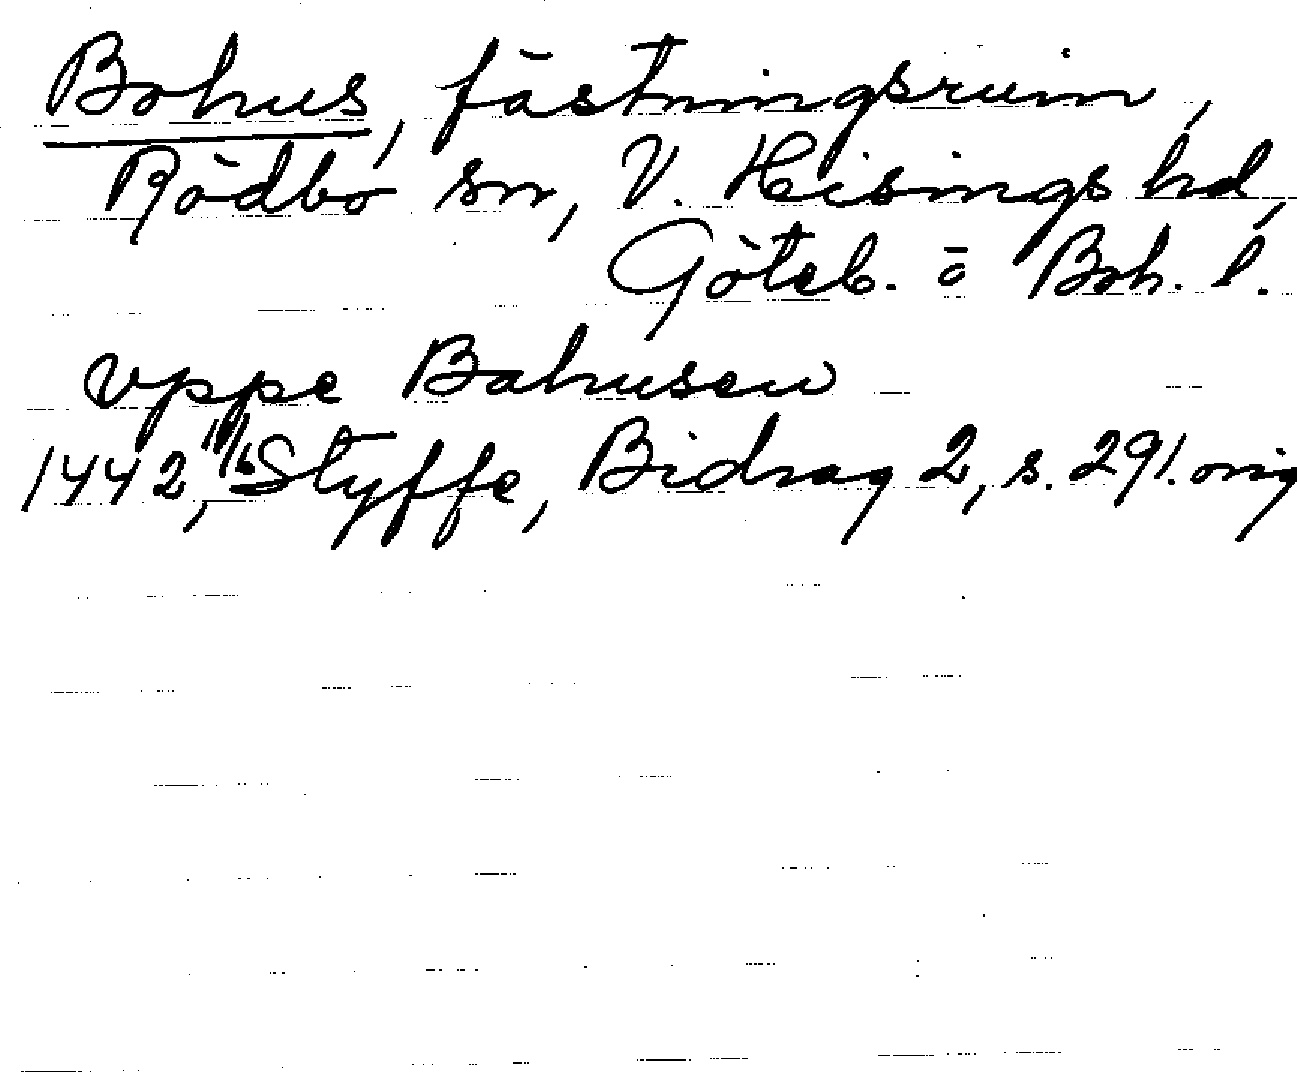 Bohus, fästningsruin,
Rödbo sn, V. Hisings hd,
Göteb. o Boh. l.
vppe Bahusen
1442 11/6, Styffe, Bidrag 2, s. 291. orig